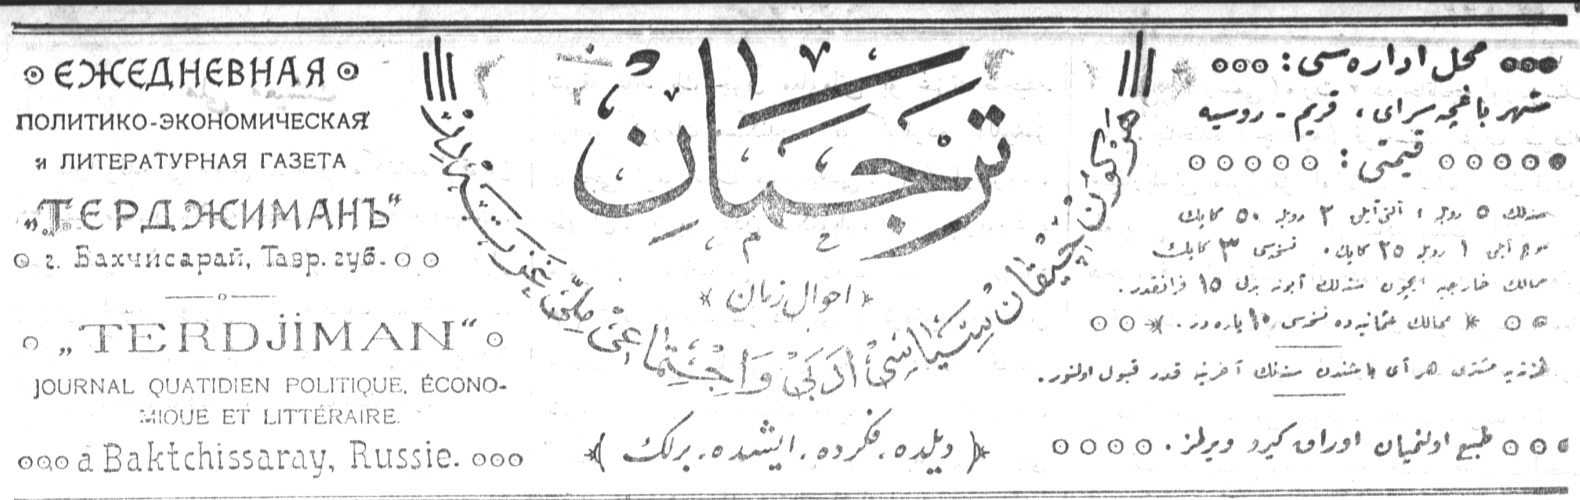 ЕЖЕДНЕВНАЯ
ПОЛИТИКО-ЭКОНОМИЧЕСКАЯ
и ЛИТЕРАТУРНАЯ ГАЗЕТА
„ТЕРДЖИМАНЪ“
г. Бахчисарай, Тавр. губ.
„TERDJIMAN“
JOURNAL QUATIDIEN POLITIQUE, ÉCONO-
MIQUE ET LITTÉRAIRE.
à Baktchissaray, Russie.
ترجمان
﴿ احوال زمان ﴾
هر كون چیقان سیاسی ادبی و اجتماعی ملی غزته در
﴿ دیلده، فكرده، ایشده، برلك ﴾
محل اداره سی:
شهر باغچه سرای، قریم - روسیه
قیمتی:
سنه لك ۵ روبله ؛ آلتی آیلق ۳ روبله ۵۰ كاپك
اوچ آیلق ۱ روبله ۲۵ كاپك. نسخه سی ۳ كاپك
ممالك خارجیه ایچون سنه لك آبونه بدلی ۱۵ فرانقدر.
ممالك عثمانیه ده نسخه سی ۱۰ پاره در.
هر آی باشندن سنه نك آخرینه قدر قبول اولنور.
طبع اولنمیان اوراق كیرو ویرلمز.